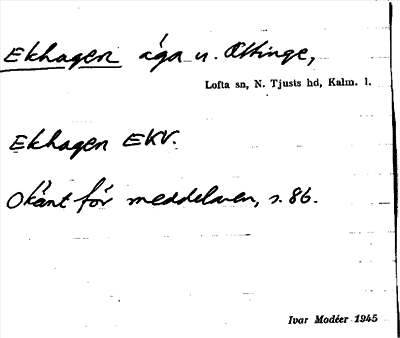 Ekhagen äga u. Ottinge,
Lofta sn, N. Tjusts hd, Kalm. l.
Ekhagen EKV.
Okänt för meddelaren, s. 86.
Ivar Modéer 1945